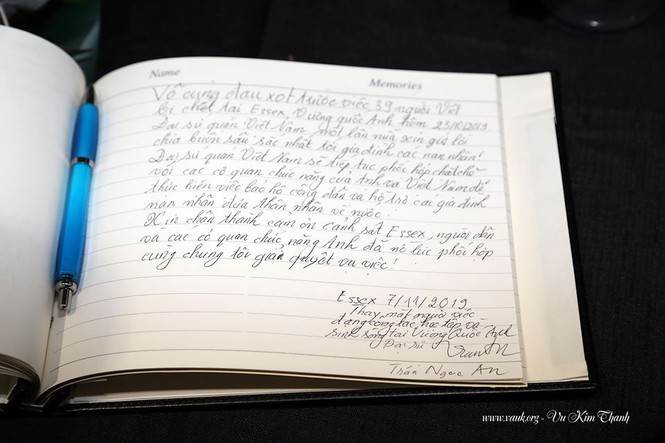 Name Memories
Vô cùng đau xót trước việc 39 người Việt
bị chết tại Essex, Vương quốc Anh hôm 23/10/2019.
Đại sứ quán Việt Nam một lần nữa xin gửi lời
chia buồn sâu sắc nhất tới gia đình các nạn nhân!
Đại sứ quán Việt Nam sẽ tiếp tục phối hợp chặt chẽ
với các cơ quan chức năng của Anh và Việt Nam để
thực hiện việc bảo hộ công dân và hỗ trợ các gia đình
nạn nhân đưa thân nhân về nước.
Xin chân thành cảm ơn cảnh sát Essex, người dân
và các cơ quan chức năng Anh đã nỗ lực phối hợp
cùng chúng tôi giải quyết vụ việc!
Essex 7/11/2019
Thay mặt người Việt
đang công tác, học tập và
sinh sống tại Vương Quốc Anh
Đại sứ
Trần Ngọc An
www.vauk.org - Vu Kim Thanh